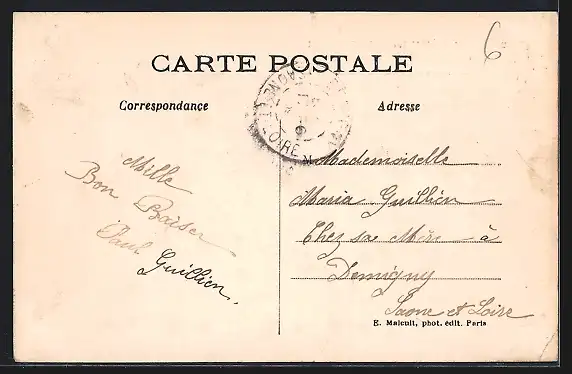 6
CARTE POSTALE
Correspondance
Adresse
Mille
Bon Baiser
Paul
Guillien.
Mademoiselle
Maria Guillien
Chez sa Mère à
Demigny
Saone et Loire
E. Malcuit, phot. édit. Paris